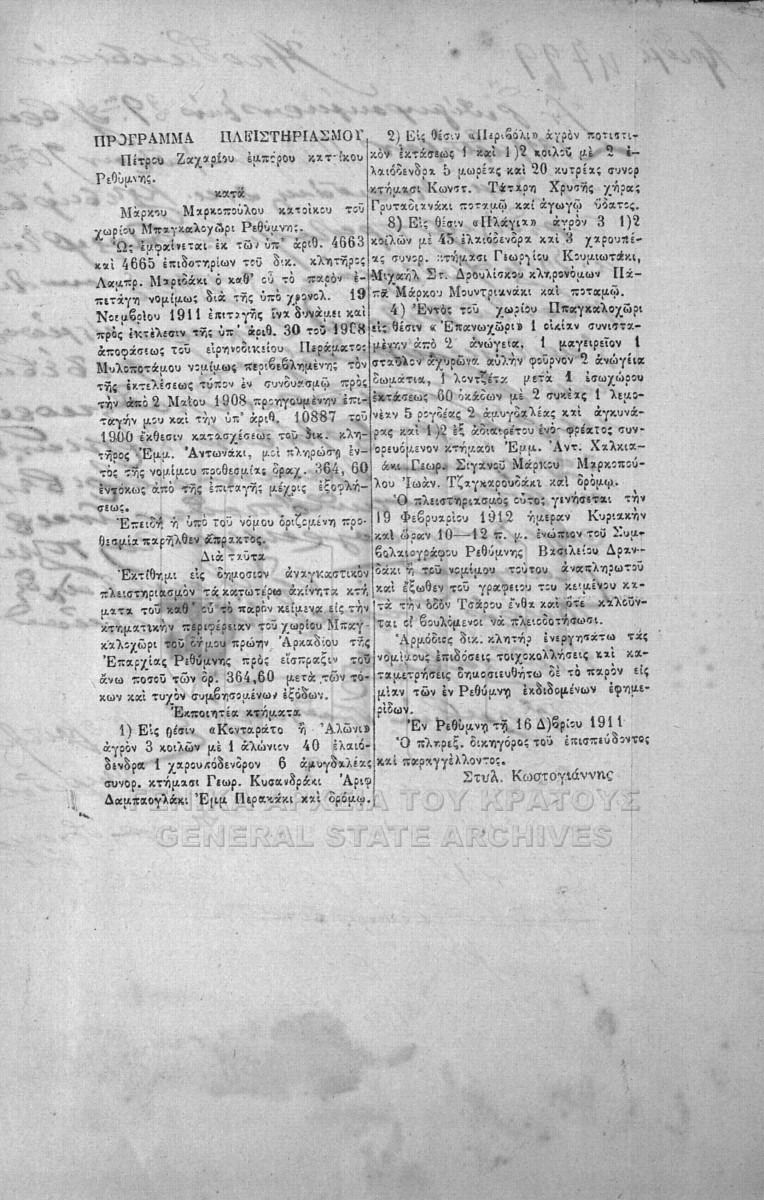 ΠΡΟΓΡΑΜΜΑ ΠΛΕΙΣΤΗΡΙΑΣΜΟΥ
Πέτρου Ζαχαρίου ἐμπόρου κατοίκου
Ρεθύμνης.
κατὰ
Μάρκου Μαρκοπούλου κατοίκου τοῦ
χωρίου Μπαγκαλοχῶρι Ρεθύμνης.
Ὡς ἐμφαίνεται ἐκ τῶν ὑπ' ἀριθ. 4663
καὶ 4665 ἐπιδοτηρίων τοῦ δικ. κλητῆρος
Λαμπρ. Μαριδάκι ὁ καθ' οὗ τὸ παρὸν ἐ-
πετάγη νομίμως διὰ τῆς ὑπὸ χρονολ. 19
Νοεμβρίου 1911 ἐπιταγῆς ἵνα δυνάμει καὶ
πρὸς ἐκτέλεσιν τῆς ὑπ' ἀριθ. 30 τοῦ 1908
ἀποφάσεως τοῦ εἰρηνοδικείου Περάματος
Μυλοποτάμου νομίμως περιβεβλημένης τὸν
τῆς ἐκτελέσεως τύπον ἐν συνδυασμῷ πρὸς
τὴν ἀπὸ 2 Μαΐου 1908 προηγουμένην ἐπι-
ταγήν μου καὶ τὴν ὑπ' ἀριθ. 10887 τοῦ
1900 ἔκθεσιν κατασχέσεως τοῦ δικ. κλη-
τῆρος Ἐμμ. Ἀντωνάκι, μοὶ πληρώσῃ ἐν-
τὸς τῆς νομίμου προθεσμίας δραχ. 364,60
ἐντόκως ἀπὸ τῆς ἐπιταγῆς μέχρις ἐξοφλή-
σεως.
Ἐπειδὴ ἡ ὑπὸ τοῦ νόμου ὁριζομένη προ-
θεσμία παρῆλθεν ἄπρακτος.
Διὰ ταῦτα
Ἐκτίθημι εἰς δημόσιον ἀναγκαστικὸν
πλειστηριασμὸν τὰ κατωτέρω ἀκίνητα κτή
ματα τοῦ καθ' οὗ τὸ παρὸν κείμενα εἰς τὴν
κτηματικὴν περιφέρειαν τοῦ χωρίου Μπαγ-
καλοχῶρι τοῦ δήμου πρώην Ἀρκαδίου τῆς
Ἐπαρχίας Ρεθύμνης πρὸς εἴσπραξιν τοῦ
ἄνω ποσοῦ τῶν δρ. 364,60 μετὰ τῶν τό-
κων καὶ τυχὸν συμβησομένων ἐξόδων.
Ἐκποιητέα κτήματα
1) Εἰς θέσιν «Κονταρᾶτο ἢ Ἁλῶνι»
ἀγρὸν 3 κοιλῶν μὲ 1 ἁλώνιον 40 ἐλαιό-
δενδρα 1 χαρουπόδενδρον 6 ἀμυγδαλέας
συνορ. κτήμασι Γεωρ. Κυσανδράκι Ἀριφ
Δαμπαογλάκι Ἐμμ Περακάκι καὶ δρόμῳ.
2) Εἰς θέσιν «Περιβόλι» ἀγρὸν ποτιστι-
κὸν ἐκτάσεως 1 καὶ 1)2 κοιλοῦ μὲ 2 ἐ-
λαιόδενδρα 5 μωρέας καὶ 20 κυτρέας συνορ
κτήμασι Κωνστ. Τάταρη Χρυσῆς χήρας
Γρυταδιανάκι ποταμῷ καὶ ἀγωγῷ ὕδατος.
8) Εἰς θέσιν «Πλάγια» ἀγρὸν 3 1)2
κοιλῶν μὲ 45 ἐλαιόδενδρα καὶ 3 χαρουπέ-
ας συνορ. κτήμασι Γεωργίου Κουμιωτάκι,
Μιχαὴλ Στ. Δρουλίσκου κληρονόμων Πα-
πᾶ Μάρκου Μουντριανάκι καὶ ποταμῷ.
4) Ἐντὸς τοῦ χωρίου Μπαγκαλοχῶρι
εἰς θέσιν «Ἐπανωχῶρι» 1 οἰκίαν συνιστα-
μένην ἀπὸ 2 ἀνώγεια, 1 μαγειρεῖον 1
σταῦλον ἀχυρῶνα αὐλὴν φοῦρνον 2 ἀνώγεια
δωμάτια, 1 λοντζέτα μετὰ 1 ἐσωχώρου
ἐκτάσεως 60 ὀκάδων μὲ 2 συκέας 1 λεμο-
νέαν 5 ρογδέας 2 ἀμυγδαλέας καὶ ἀγκυνά-
ρας καὶ 1)2 ἐξ ἀδιαιρέτου ἑνὸς φρέατος συν-
ορευόμενον κτήμασι Ἐμμ. Ἀντ. Χαλκια-
δάκι Γεωρ. Σιγανοῦ Μάρκου Μαρκοπού-
λου Ἰωάν. Τζαγκαρουδάκι καὶ δρόμῳ.
Ὁ πλειστηριασμὸς οὗτος γενήσεται τὴν
19 Φεβρυαρίου 1912 ἡμέραν Κυριακὴν
καὶ ὥραν 10—12 π. μ. ἐνώπιον τοῦ Συμ-
βολαιογράφου Ρεθύμνης Βασιλείου Δραν-
δάκι ἢ τοῦ νομίμου τούτου ἀναπληρωτοῦ
καὶ ἔξωθεν τοῦ γραφείου του κειμένου κα-
τὰ τὴν ὁδὸν Τσάρου ἔνθα καὶ ὅτε καλοῦν-
ται οἱ βουλόμενοι νὰ πλειοδοτήσωσι.
Ἁρμόδιος δικ. κλητὴρ ἐνεργησάτω τὰς
νομίμους ἐπιδόσεις τοιχοκολλήσεις καὶ κα-
ταμετρήσεις δημοσιευθήτω δὲ τὸ παρὸν εἰς
μίαν τῶν ἐν Ρεθύμνῃ ἐκδιδομένων ἐφημε-
ρίδων.
Ἐν Ρεθύμνῃ τῇ 16 Δ)βρίου 1911
Ὁ πληρεξ. δικηγόρος τοῦ ἐπισπεύδοντος
καὶ παραγγέλλοντος.
Στυλ. Κωστογιάννης
ΓΕΝΙΚΑ ΑΡΧΕΙΑ ΤΟΥ ΚΡΑΤΟΥΣ
GENERAL STATE ARCHIVES